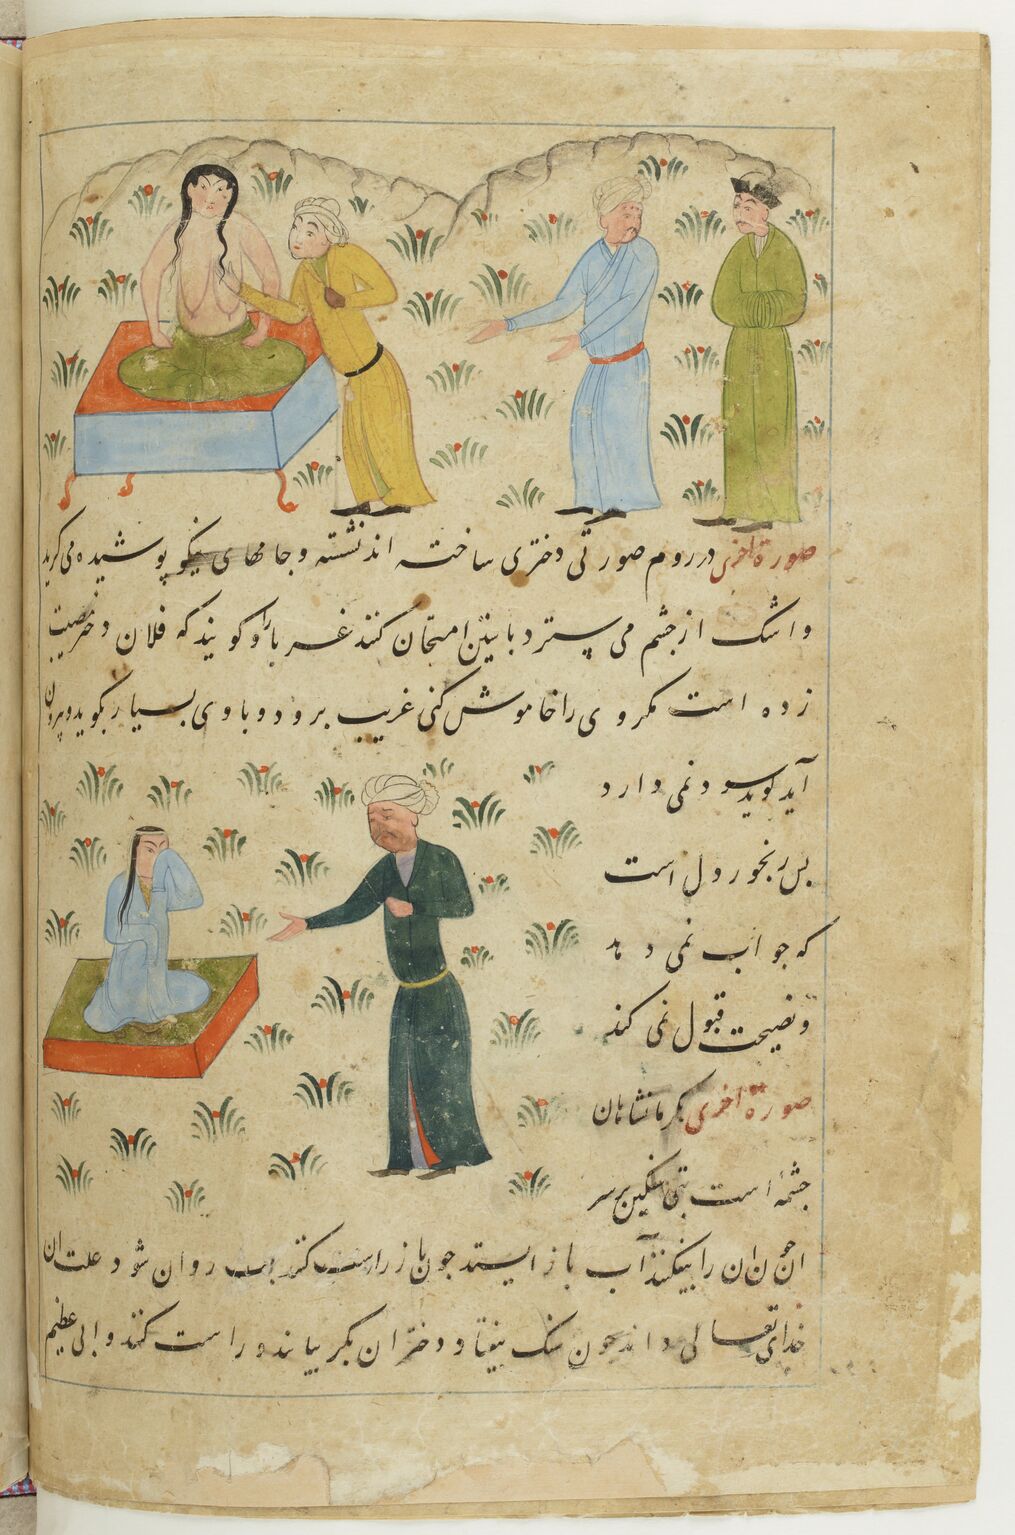 صورة اخری در روم صورتی دختری ساخته اند نشسته و جامهای نیکو پوشیده می گرید
و اشک از چشم می سترد بابینن امتحان کنند غربا را و کویند که فلان دختر مصیبت
زده است مکر وی را خاموش کنی غریب برود و با وی بسیار بکوید و بیرون
آید کوید سود نمی دارد
بس رنجور دل است
که جواب نمی دهد
و نصیحت قبول نمی کند
صورة اخری بکرمانشاهان
چشمهٔ است بتی سنکین بر سر
ان چون ان را بیفکنند آب باز ایستد چون باز راست کنند آب روان شود علت ان
خدای تعالی داند چون سنک بیفتاد دختران بکر بیایند و راست کنند و الی عظیم